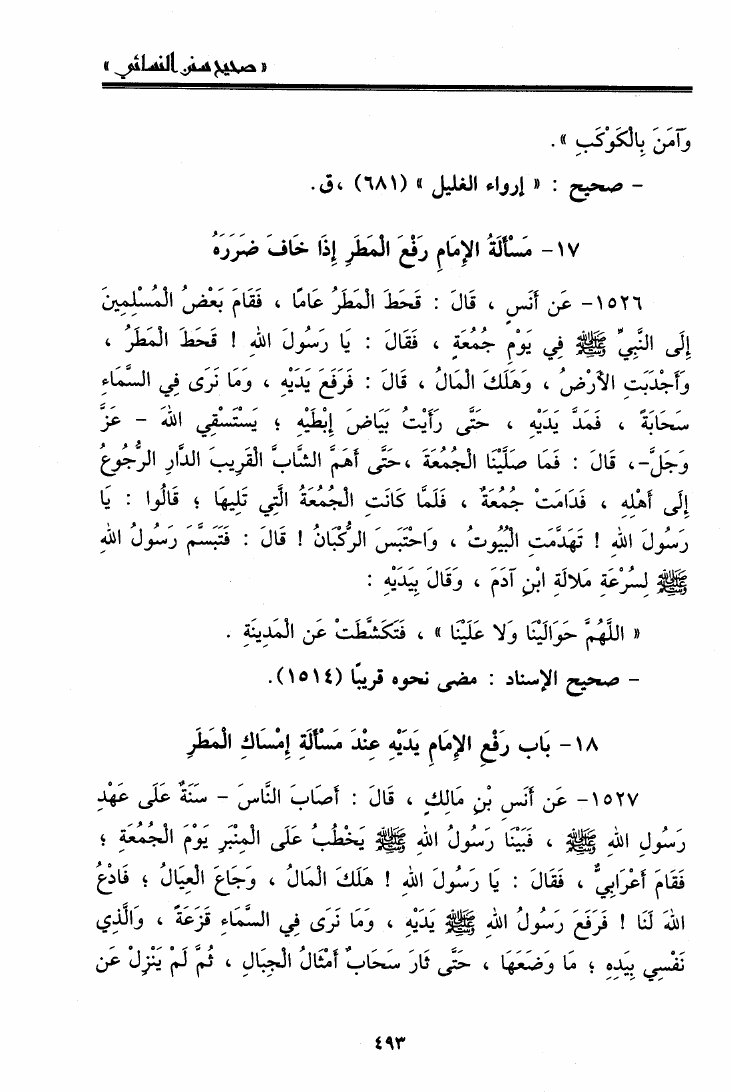 « صحيح سنن النسائي »
وَآمَنَ بِالْكَوْكَبِ » .
– صحيح : « إرواء الغليل » (٦٨١) ،ق.
١٧– مَسْأَلَةُ الإِمَامِ رَفْعَ الْمَطَرِ إِذَا خَافَ ضَرَرَهُ
١٥٢٦– عَن أَنَسٍ ، قَالَ : قَحَطَ الْمَطَرُ عَامًا ، فَقَامَ بَعْضُ الْمُسْلِمِينَ
إِلَى النَّبِيِّ ﷺ فِي يَوْمِ جُمُعَةٍ ، فَقَالَ : يَا رَسُولَ اللهِ ! قَحَطَ الْمَطَرُ ،
وَأَجْدَبَتِ الأَرْضُ ، وَهَلَكَ الْمَالُ ، قَالَ : فَرَفَعَ يَدَيْهِ ، وَمَا نَرَى فِي السَّمَاءِ
سَحَابَةً ، فَمَدَّ يَدَيْهِ ، حَتَّى رَأَيْتُ بَيَاضَ إِبْطَيْهِ ؛ يَسْتَسْقِي اللهَ – عَزَّ
وَجَلَّ–، قَالَ : فَمَا صَلَّيْنَا الْجُمُعَةَ ،حَتَّى أَهَمَّ الشَّابَّ الْقَرِيبَ الدَّارِ الرُّجُوعُ
إِلَى أَهْلِهِ ، فَدَامَتْ جُمُعَةٌ ، فَلَمَّا كَانَتِ الْجُمُعَةُ الَّتِي تَلِيهَا ؛ قَالُوا : يَا
رَسُولَ اللهِ ! تَهَدَّمَتِ الْبُيُوتُ ، وَاحْتَبَسَ الرُّكْبَانُ ! قَالَ : فَتَبَسَّمَ رَسُولُ اللهِ
ﷺ لِسُرْعَةِ مَلالَةِ ابْنِ آدَمَ ، وَقَالَ بِيَدَيْهِ :
« اللَّهُمَّ حَوَالَيْنَا وَلا عَلَيْنَا » ، فَتَكَشَّطَتْ عَنِ الْمَدِينَةِ .
– صحيح الإسناد : مضى نحوه قريبًا (١٥١٤).
١٨– بَاب رَفْعِ الإِمَامِ يَدَيْهِ عِنْدَ مَسْأَلَةِ إِمْسَاكِ الْمَطَرِ
١٥٢٧– عَن أَنَسِ بْنِ مَالِكٍ ، قَالَ : أَصَابَ النَّاسَ – سَنَةٌ عَلَى عَهْدِ
رَسُولِ اللهِ ﷺ ، فَبَيْنَا رَسُولُ اللهِ ﷺ يَخْطُبُ عَلَى الْمِنْبَرِ يَوْمَ الْجُمُعَةِ ؛
فَقَامَ أَعْرَابِيٌّ ، فَقَالَ : يَا رَسُولَ اللهِ ! هَلَكَ الْمَالُ ، وَجَاعَ الْعِيَالُ ؛ فَادْعُ
اللهَ لَنَا ! فَرَفَعَ رَسُولُ اللهِ ﷺ يَدَيْهِ ، وَمَا نَرَى فِي السَّمَاءِ قَزَعَةً ، وَالَّذِي
نَفْسِي بِيَدِهِ ؛ مَا وَضَعَهَا ، حَتَّى ثَارَ سَحَابٌ أَمْثَالُ الْجِبَالِ ، ثُمَّ لَمْ يَنْزِلْ عَن
٤٩٣